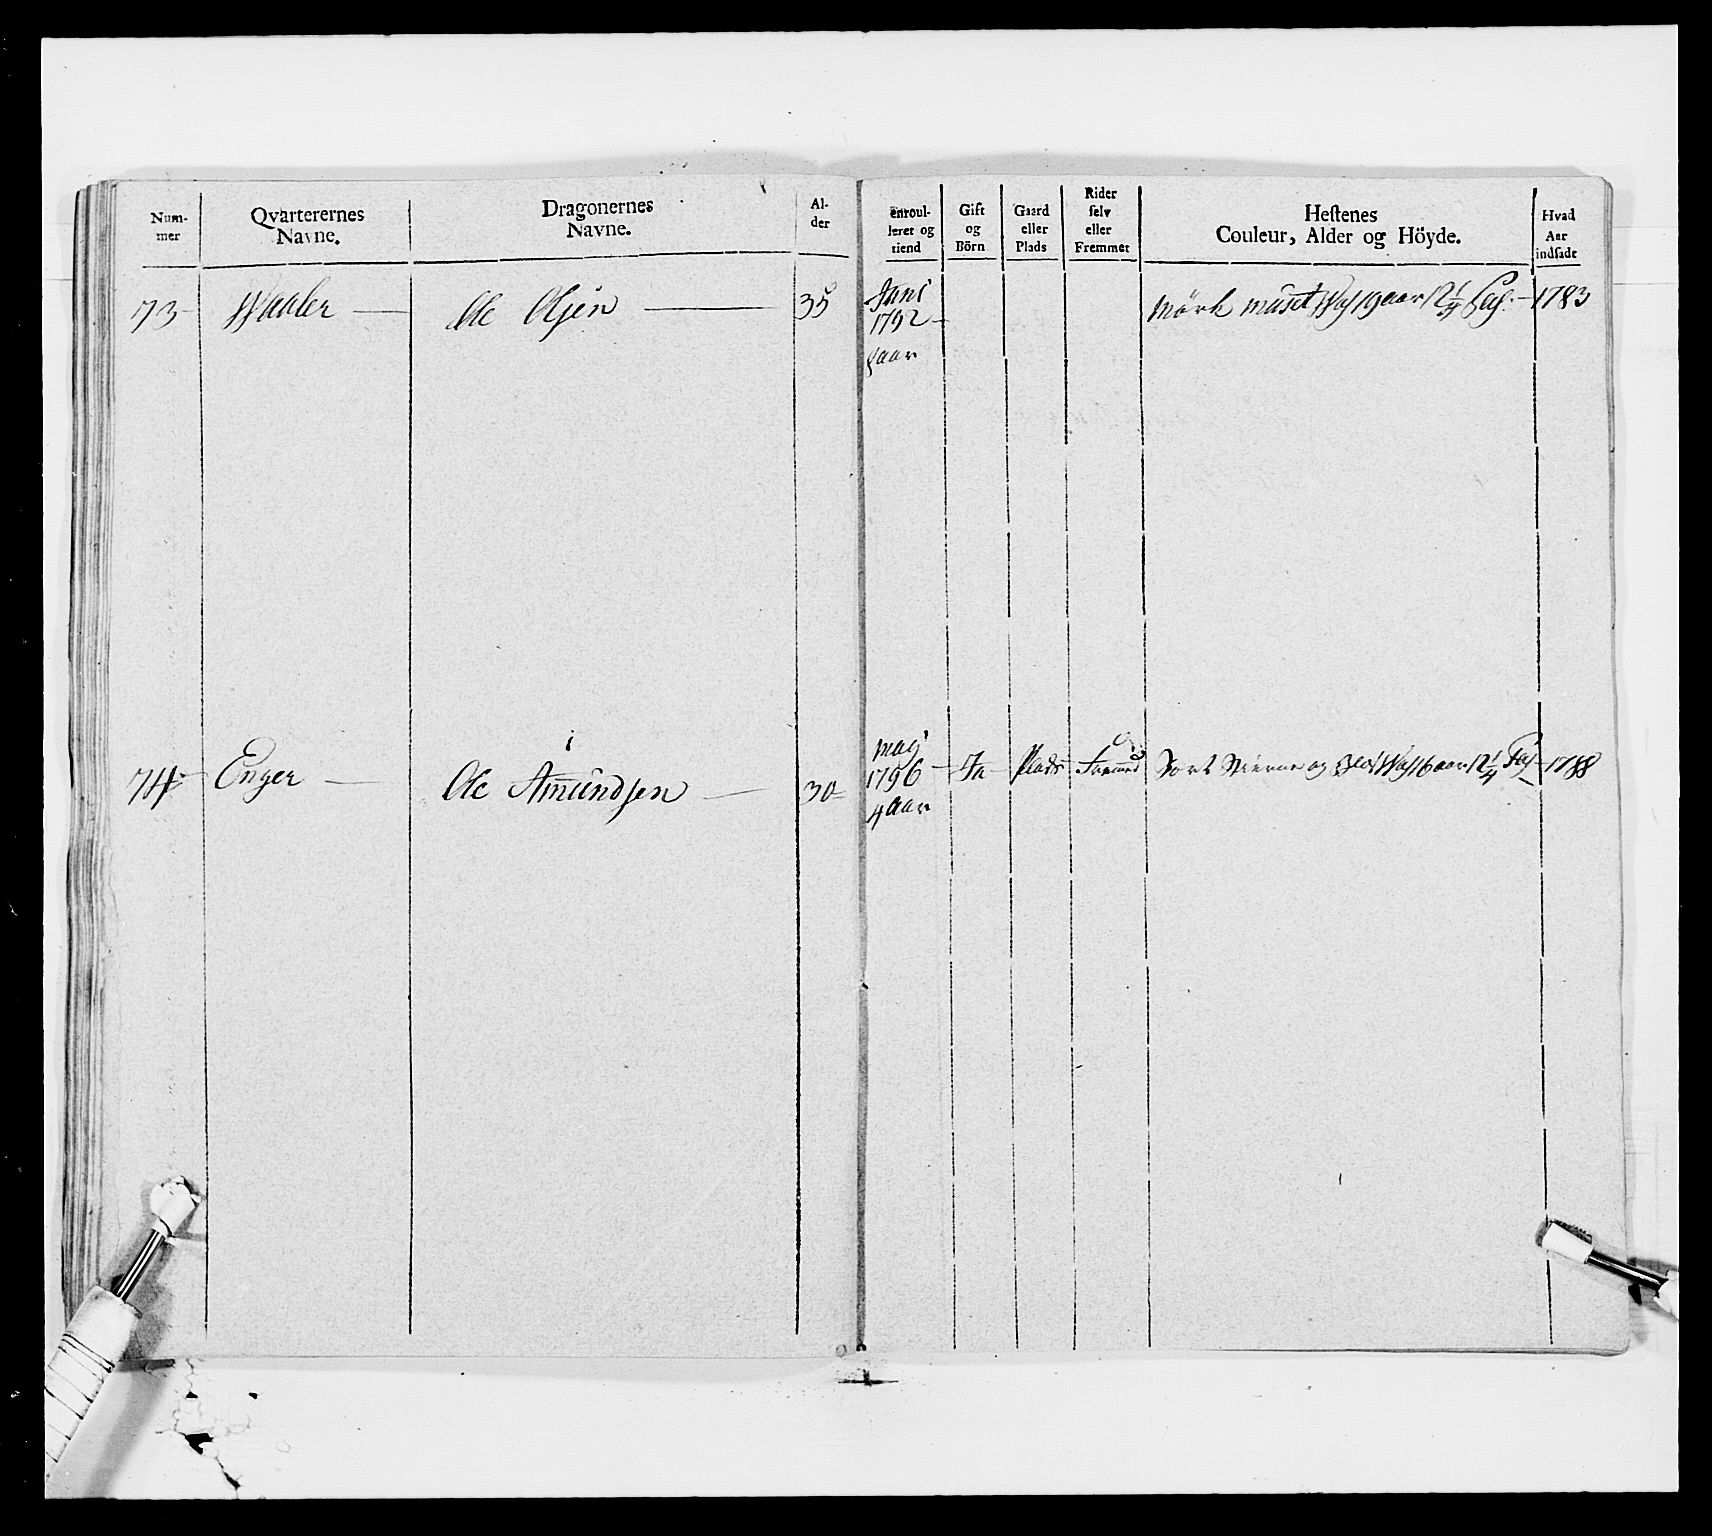 Num-
mer
Qvarterernes
Navne.
Dragonernes
Navne.
Al-
der
enroul-
leret og
tiend
Gift
og
Börn
Gaard
eller
Plads
Rider
selv
eller
Fremmet
Hestenes
Couleur, Alder og Höyde.
Hvad
Aar
indsade
73 Waaler Ole Olsen 35
Juni
1792
aar
Mörk muset 19 aar 12 1/4 1783
74 Enger Ole Amundsen 30
Maÿ
1796
4 aar
Ja Plads Fremmed
Sort Stierne og 16 aar 12 1/4 1788